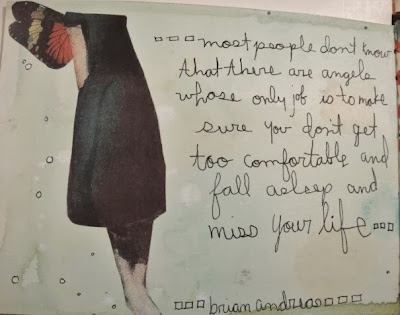 most people don't know
that there are angels
whose only job is to make
sure you don't get
too comfortable and
fall asleep and
miss your life
brian andreas